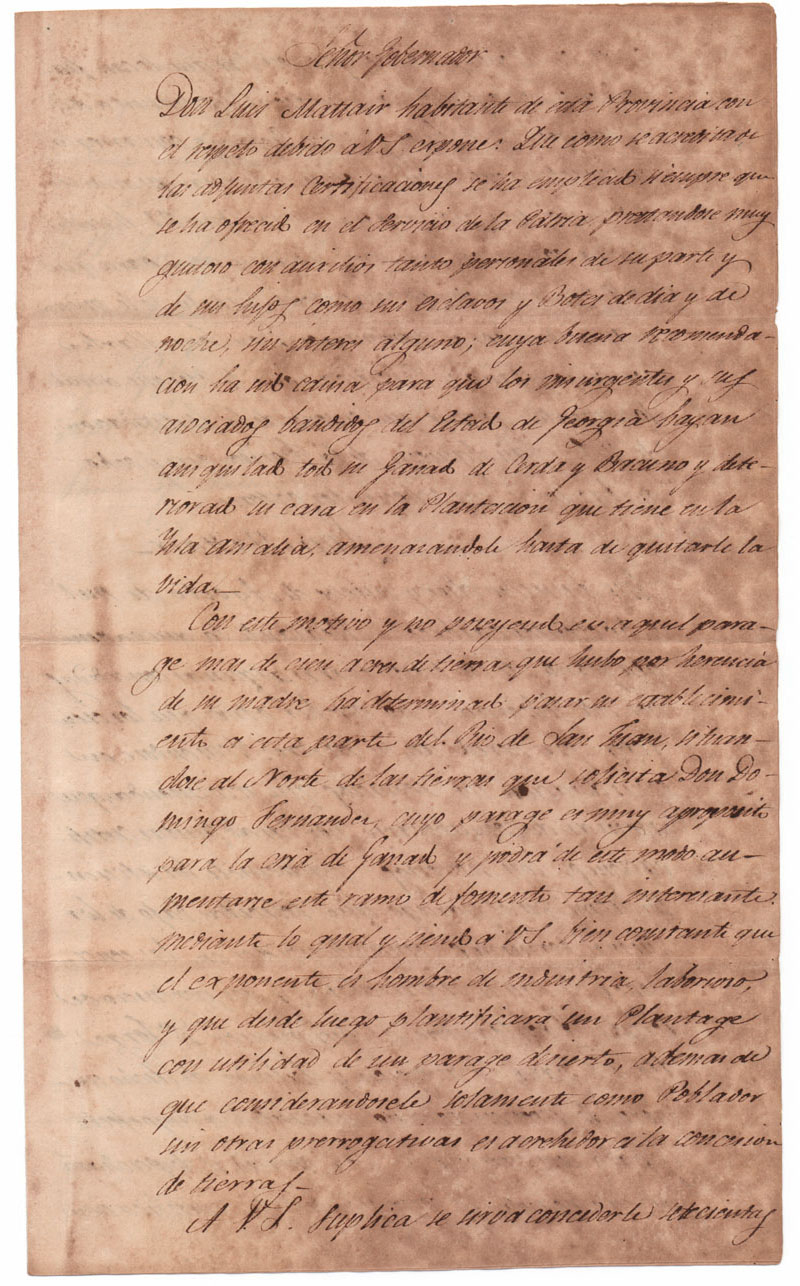 Señor Gobernador
Don Luis Mattair habitante de esta Provincia con
el respeto debido á V.S. expone: Que como se acredita de
las adjuntas Certificaciones se ha emplead siempre que
se ha ofrecid en el Servicio de la Pátria prestandose muy
gustoso con auxilios tanto personáles de su parte y
de sus hijos como sus esclavos y Botes de dia y de
noche, sin interes alguno; cuya buena recomenda-
cion ha sid causa para que los insurgentes y sus
asociados bandidos del Estad de Georgia hayan
aniquilad tod su Ganad de Cerda y Bacuno y dete-
riorad su casa en la Plantacion que tiene en la
Ysla Amalia, amenasandole hasta de quitarle la
vida.—
Con este motivo y no poseyend en aquel para-
ge mas de cien acres de tierra que hubo por herencia
de su madre há determinad pasar su establecimi-
ento a esta parte del Rio de San Juan, situan-
dose al Norte de las tierras que solicita Don Do-
mingo Fernandez, cuyo parage es muy aproposito
para la cria de Ganad y podrá de este modo au-
mentarse este ramo de fomento tan interesante.
mediante lo qual y siend a V.S. bien constante que
el exponente es hombre de industria, laborioso,
y que desde luego plantificará un Plantage
con utilidad de un parage disierto, ademas de
que considerandosele solamente como Poblador
sin otras prerrogativas es acrehedor a la concesion
de tierras—
A V.S. Suplica se sirva concederle setecientas